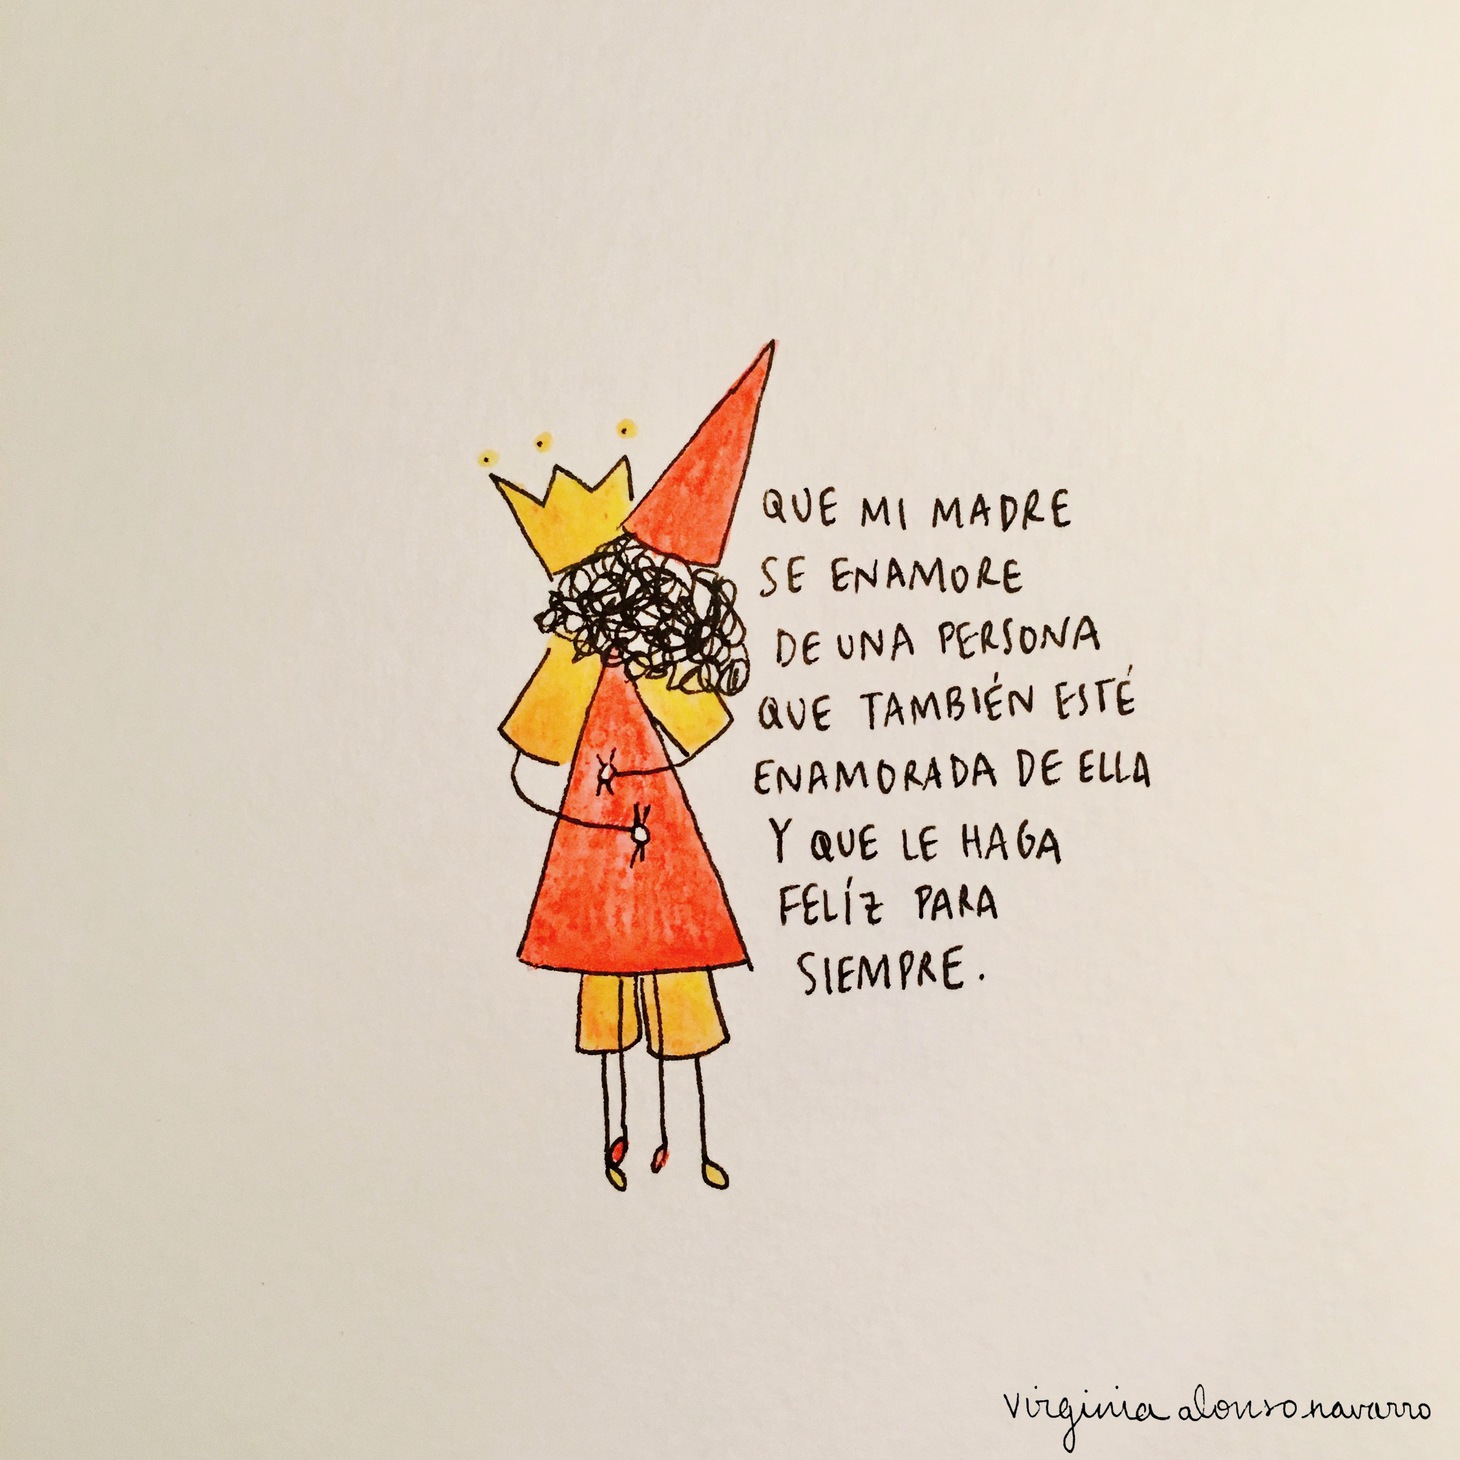 QUE MI MADRE
SE ENAMORE
DE UNA PERSONA
QUE TAMBIÉN ESTÉ
ENAMORADA DE ELLA
Y QUE LE HAGA
FELÍZ PARA
SIEMPRE.
virginia alonso navarro